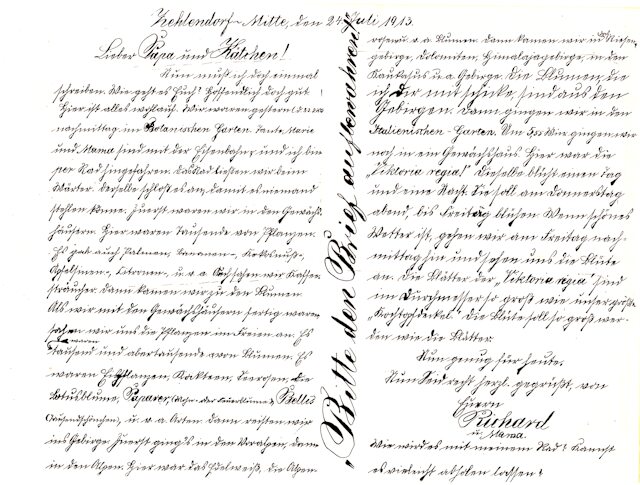 Zehlendorf-Mitte, den 24. Juli 1913.
Lieber Papa und Kätchen!
Nun muß ich doch einmal
schreiben. Wie geht es Euch? Hoffentlich doch gut!
Hier ist alles wohlauf. Wir waren gestern
nachmittag im Botanischen Garten. Tante Marie
und Mama sind mit der Eisenbahn, und ich bin
per Rad hingefahren. Das Rad ließen wir beim
Wärter. Derselbe schloß es an, damit es niemand
stehlen könne. Zuerst waren wir in den Gewächs-
häusern. Hier waren Tausende von Pflanzen.
Es gab auch Palmen, Bananen-, Kokosnuß-,
Apfelsinen-, Zitronen-, u. s. a. Auch sahen wir Kaffee-
sträucher. Dann kamen wir zu den Blumen.
Als wir mit den Gewächshäusern fertig waren,
sahen wir uns die Pflanzen im Freien an. Es
waren
tausend und abertausende von Blumen. Es
waren Kakteen, Seerosen, die
Lotusblume, Papaver, (Mohn- oder Feuerblume) Bellis
(Tausendschönchen), u. s. a. Arten. Dann reisten wir
ins Gebirge. Zuerst ging's in den Voralpen, dann
in den Alpen. Hier war das Edelweiß, die Alpen-
„Bitte den Brief aufbewahren!“
rosen u. s. a. Blumen. Dann kamen wir in das Riesen-
gebirge, Dolomiten, Himalajagebirge, in den
Kaukasus u. a. Gebirge. Die Blumen, die
ich Dir mit schicke, sind aus den
Gebirgen. Dann gingen wir in den
Italienischen-Garten. Um wir gingen
noch in ein Gewächshaus. Hier war die
„Viktoria regia!“ Dieselbe blüht einen Tag
und eine Nacht. Sie soll am Donnerstag
abend, bis Freitag blühen. Wenn schönes
Wetter ist, gehen wir am Freitag nach-
mittag hin und sehen uns die Blüte
an. Die Blätter der „Viktoria regia“ sind
im Durchmesser so groß wie unser größter
„Kochtopfdeckel“. Die Blüte soll so groß wer-
den wie die Blätter.
Nun genug für heute.
Nun Seid recht herzl. gegrüßt, von
Euern
Richard
u. Mama.
Wie wird es mit meinem Rad? Kannst
es vielleicht abholen lassen?